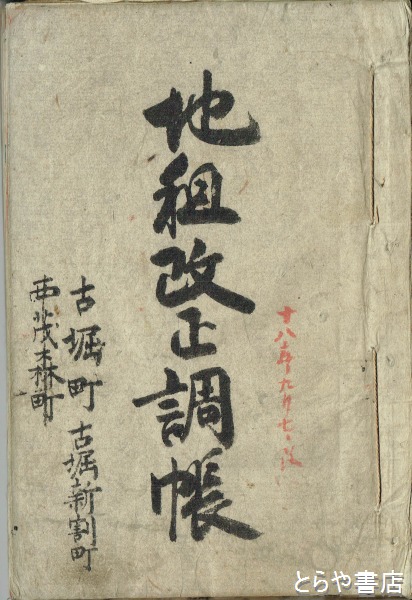 十八年九月七日改
地租改正調帳
古堀町 古堀新割町
西茂森町
とらや書店